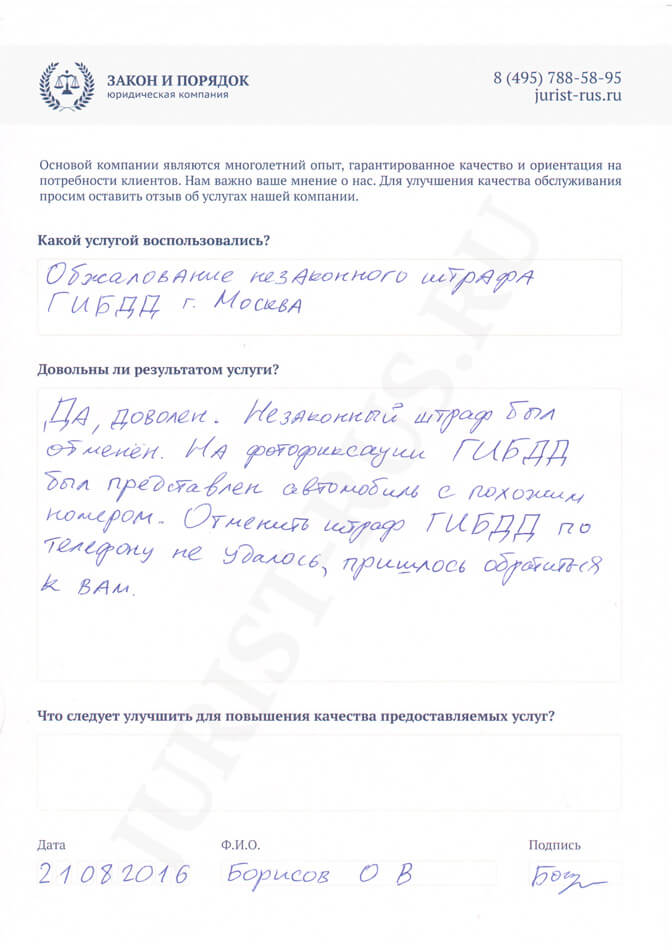 ЗАКОН И ПОРЯДОК
юридическая компания
8 (495) 788-58-95
jurist-rus.ru
Основой компании являются многолетний опыт, гарантированное качество и ориентация на
потребности клиентов. Нам важно ваше мнение о нас. Для улучшения качества обслуживания
просим оставить отзыв об услугах нашей компании.
Какой услугой воспользовались?
Обжалование незаконного штрафа
ГИБДД г. Москва
Довольны ли результатом услуги?
Да, доволен. Незаконный штраф был
отменён. На фотофиксации ГИБДД
был представлен автомобиль с похожим
номером. Отменить штраф ГИБДД по
телефону не удалось, пришлось обратиться
к вам.
Что следует улучшить для повышения качества предоставляемых услуг?
Дата
Ф.И.О.
Подпись
21082016
Борисов О В
JURIST-RUS.RU